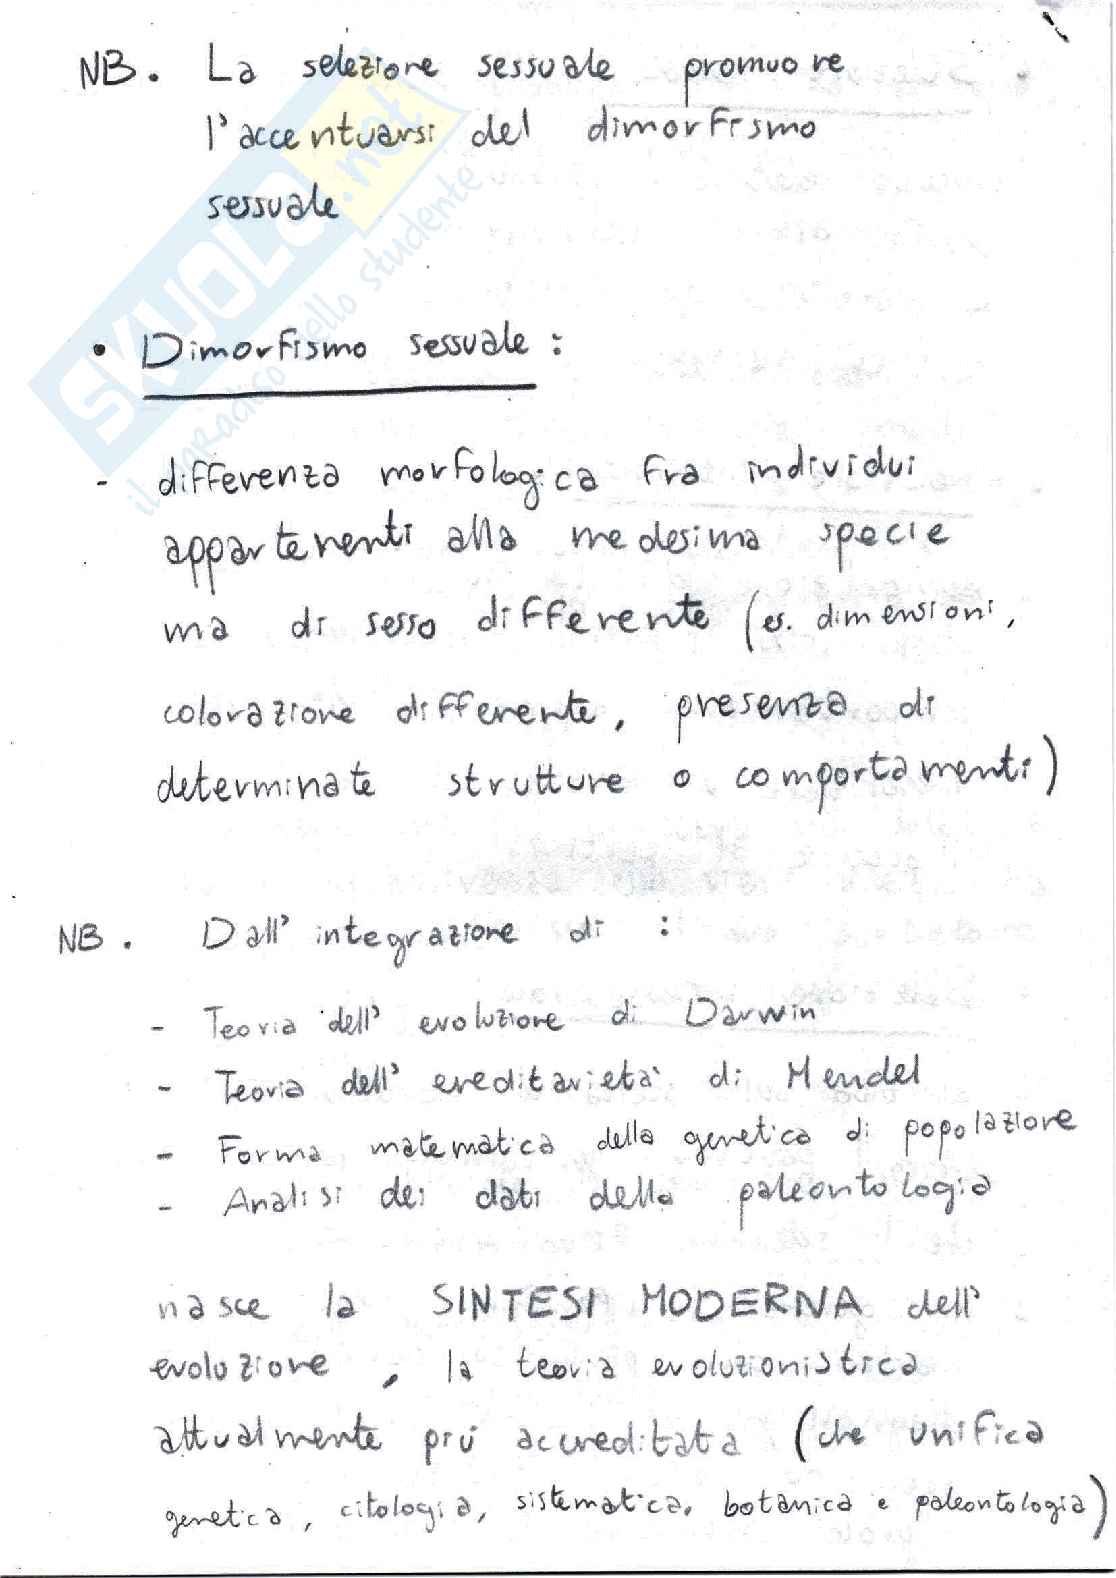 NB. La selezione sessuale promuove
l'accentuarsi del dimorfismo
sessuale
• Dimorfismo sessuale :
- differenza morfologica fra individui
appartenenti alla medesima specie
ma di sesso differente (es. dimensioni,
colorazione differente, presenza di
determinate strutture o comportamenti)
NB. Dall' integrazione di :
- Teoria dell' evoluzione di Darwin
- Teoria dell' ereditarietà di Mendel
- Forma matematica della genetica di popolazione
- Analisi dei dati della paleontologia
nasce la SINTESI MODERNA dell'
evoluzione, la teoria evoluzionistica
attualmente più accreditata (che unifica
genetica, citologia, sistematica, botanica e paleontologia)
SKUOLA.net
il paradiso dello studente